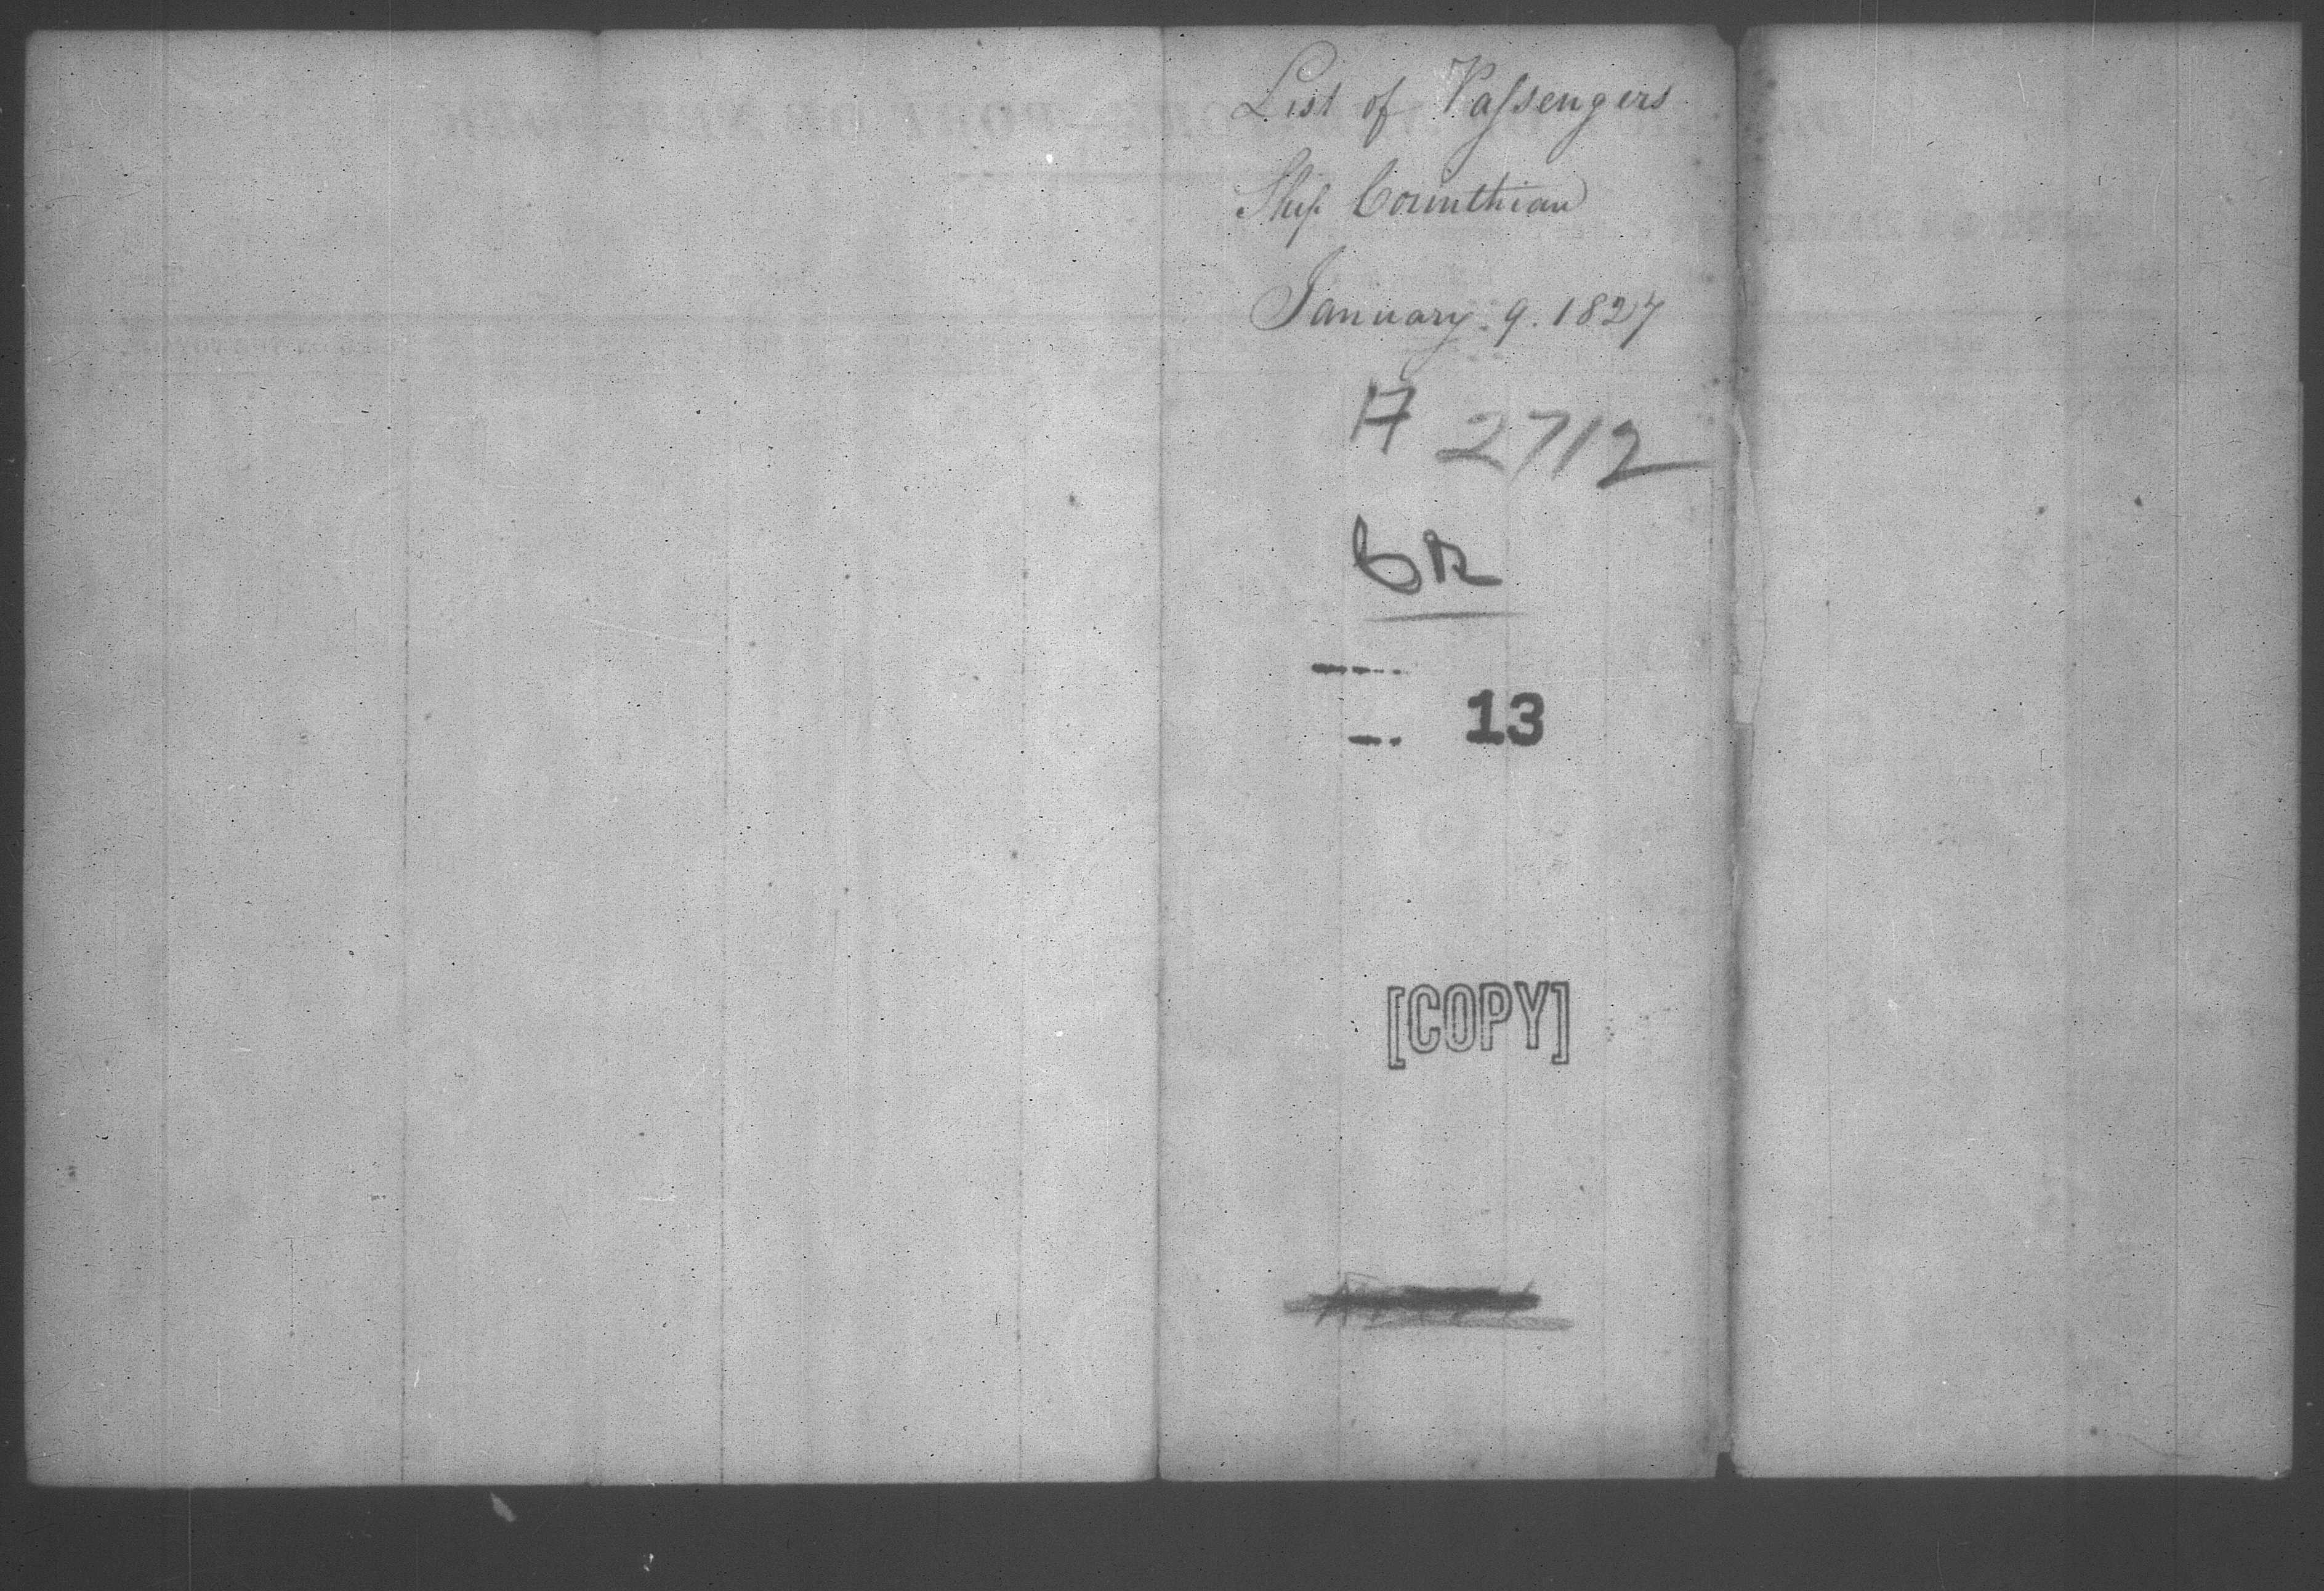 List of Passengers
Ship Corinthian
January. 9. 1827
17 2712
13
[COPY]